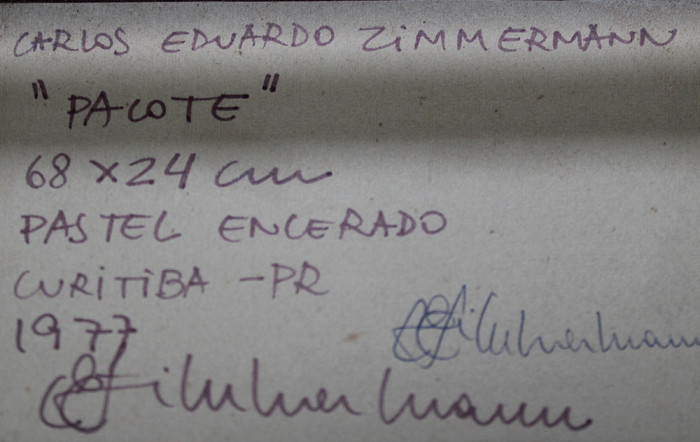 CARLOS EDUARDO ZIMMERMANN
"PACOTE"
68 x 24 cm
PASTEL ENCERADO
CURITIBA - PR
1977
Zimmermann
Zimmermann